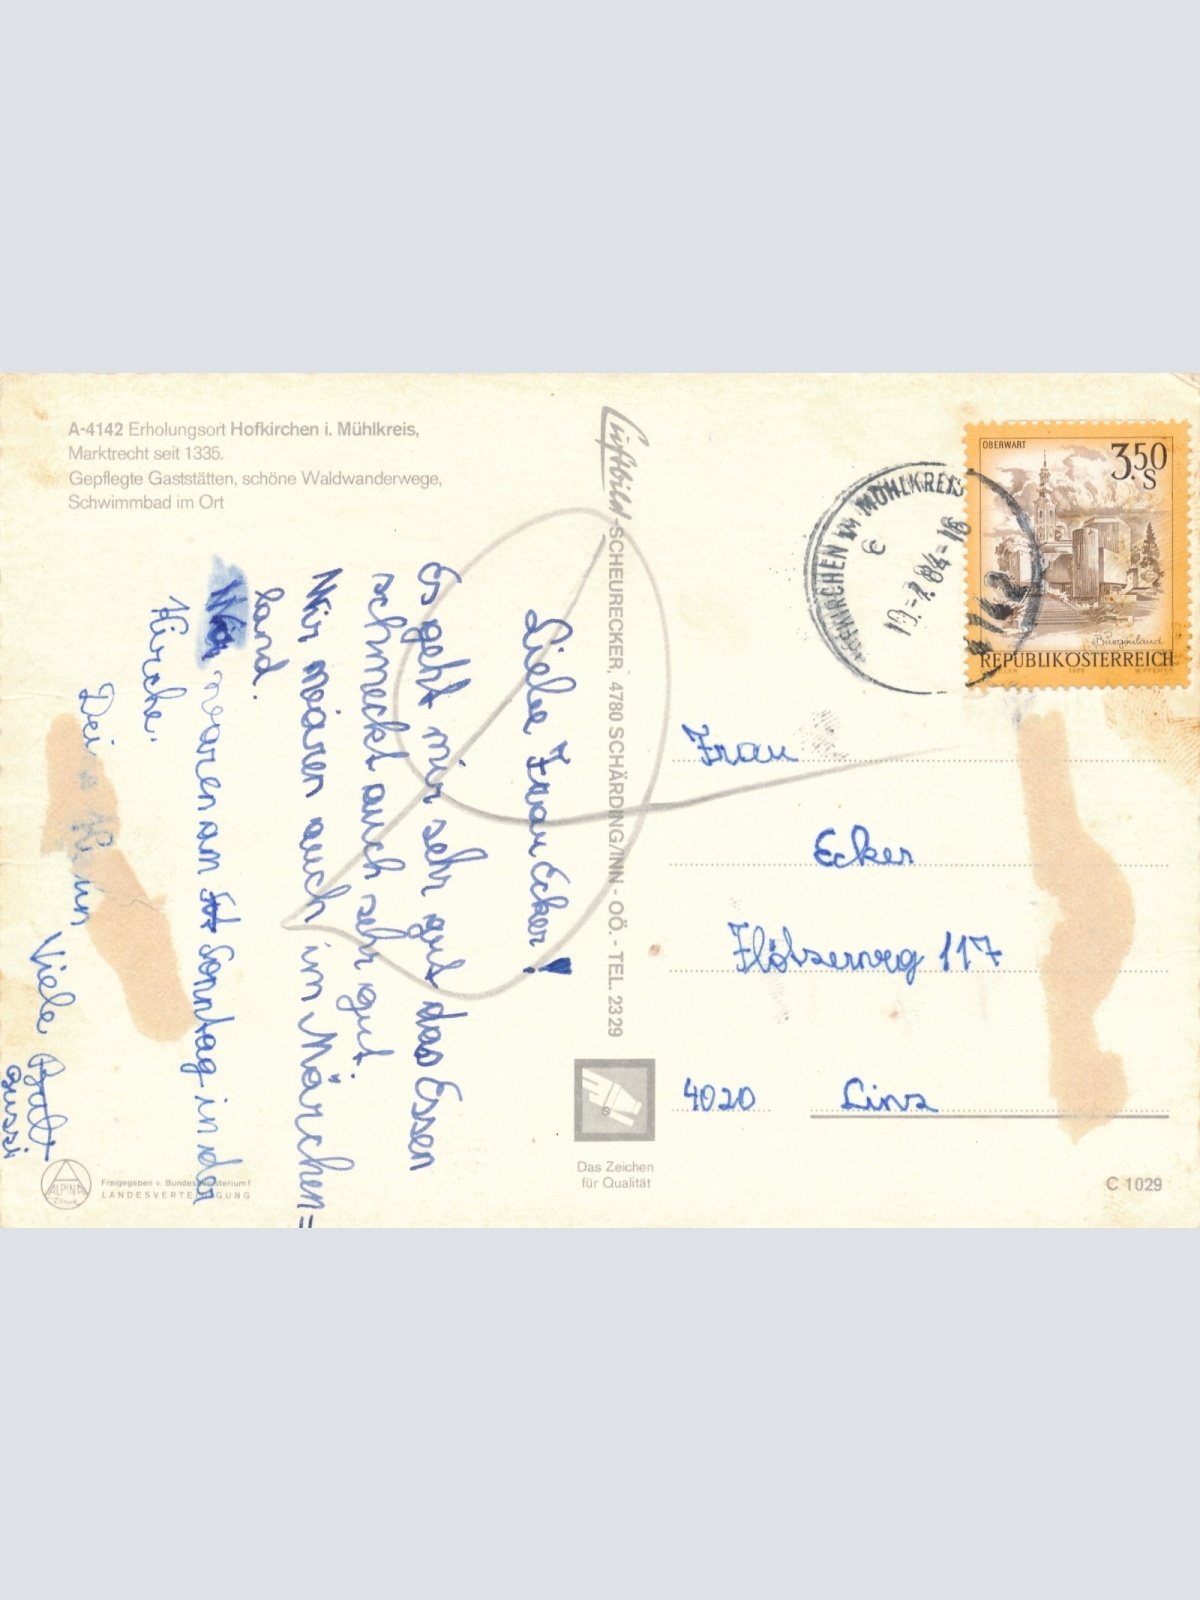 A-4142 Erholungsort Hofkirchen i. Mühlkreis,
Marktrecht seit 1335.
Gepflegte Gaststätten, schöne Waldwanderwege,
Schwimmbad im Ort
Liebe Frau Ecker!
Es geht mir sehr gut das Essen
schmeckt auch sehr gut.
Wir wären auch im Märchen=
land.
Wir waren am Sonntag in der
Kirche.
Viele
Bussi
Luftbild-SCHEURECKER, 4780 SCHÄRDING/INN - OÖ. - TEL. 2329
HOFKIRCHEN IM MÜHLKREIS
10.-7.84-16
4142
c
OBERWART
3.50
S
Burgenland
REPUBLIK ÖSTERREICH
1976
Frau
Ecker
Flötzerweg 117
4020 Linz
Das Zeichen
für Qualität
C 1029
ALPINA
Druck
Freigegeben v. Bundesministerium f
LANDESVERTEIDIGUNG